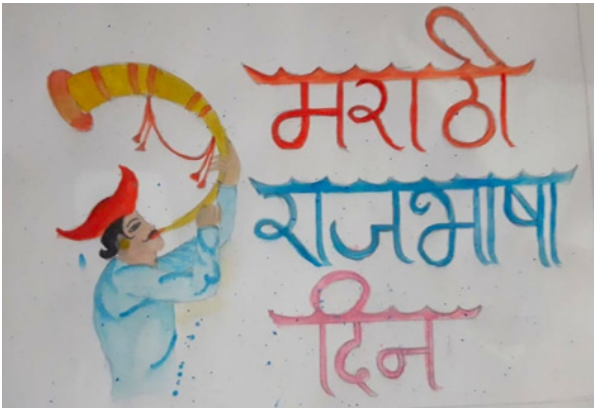 मराठी
राजभाषा
दिन